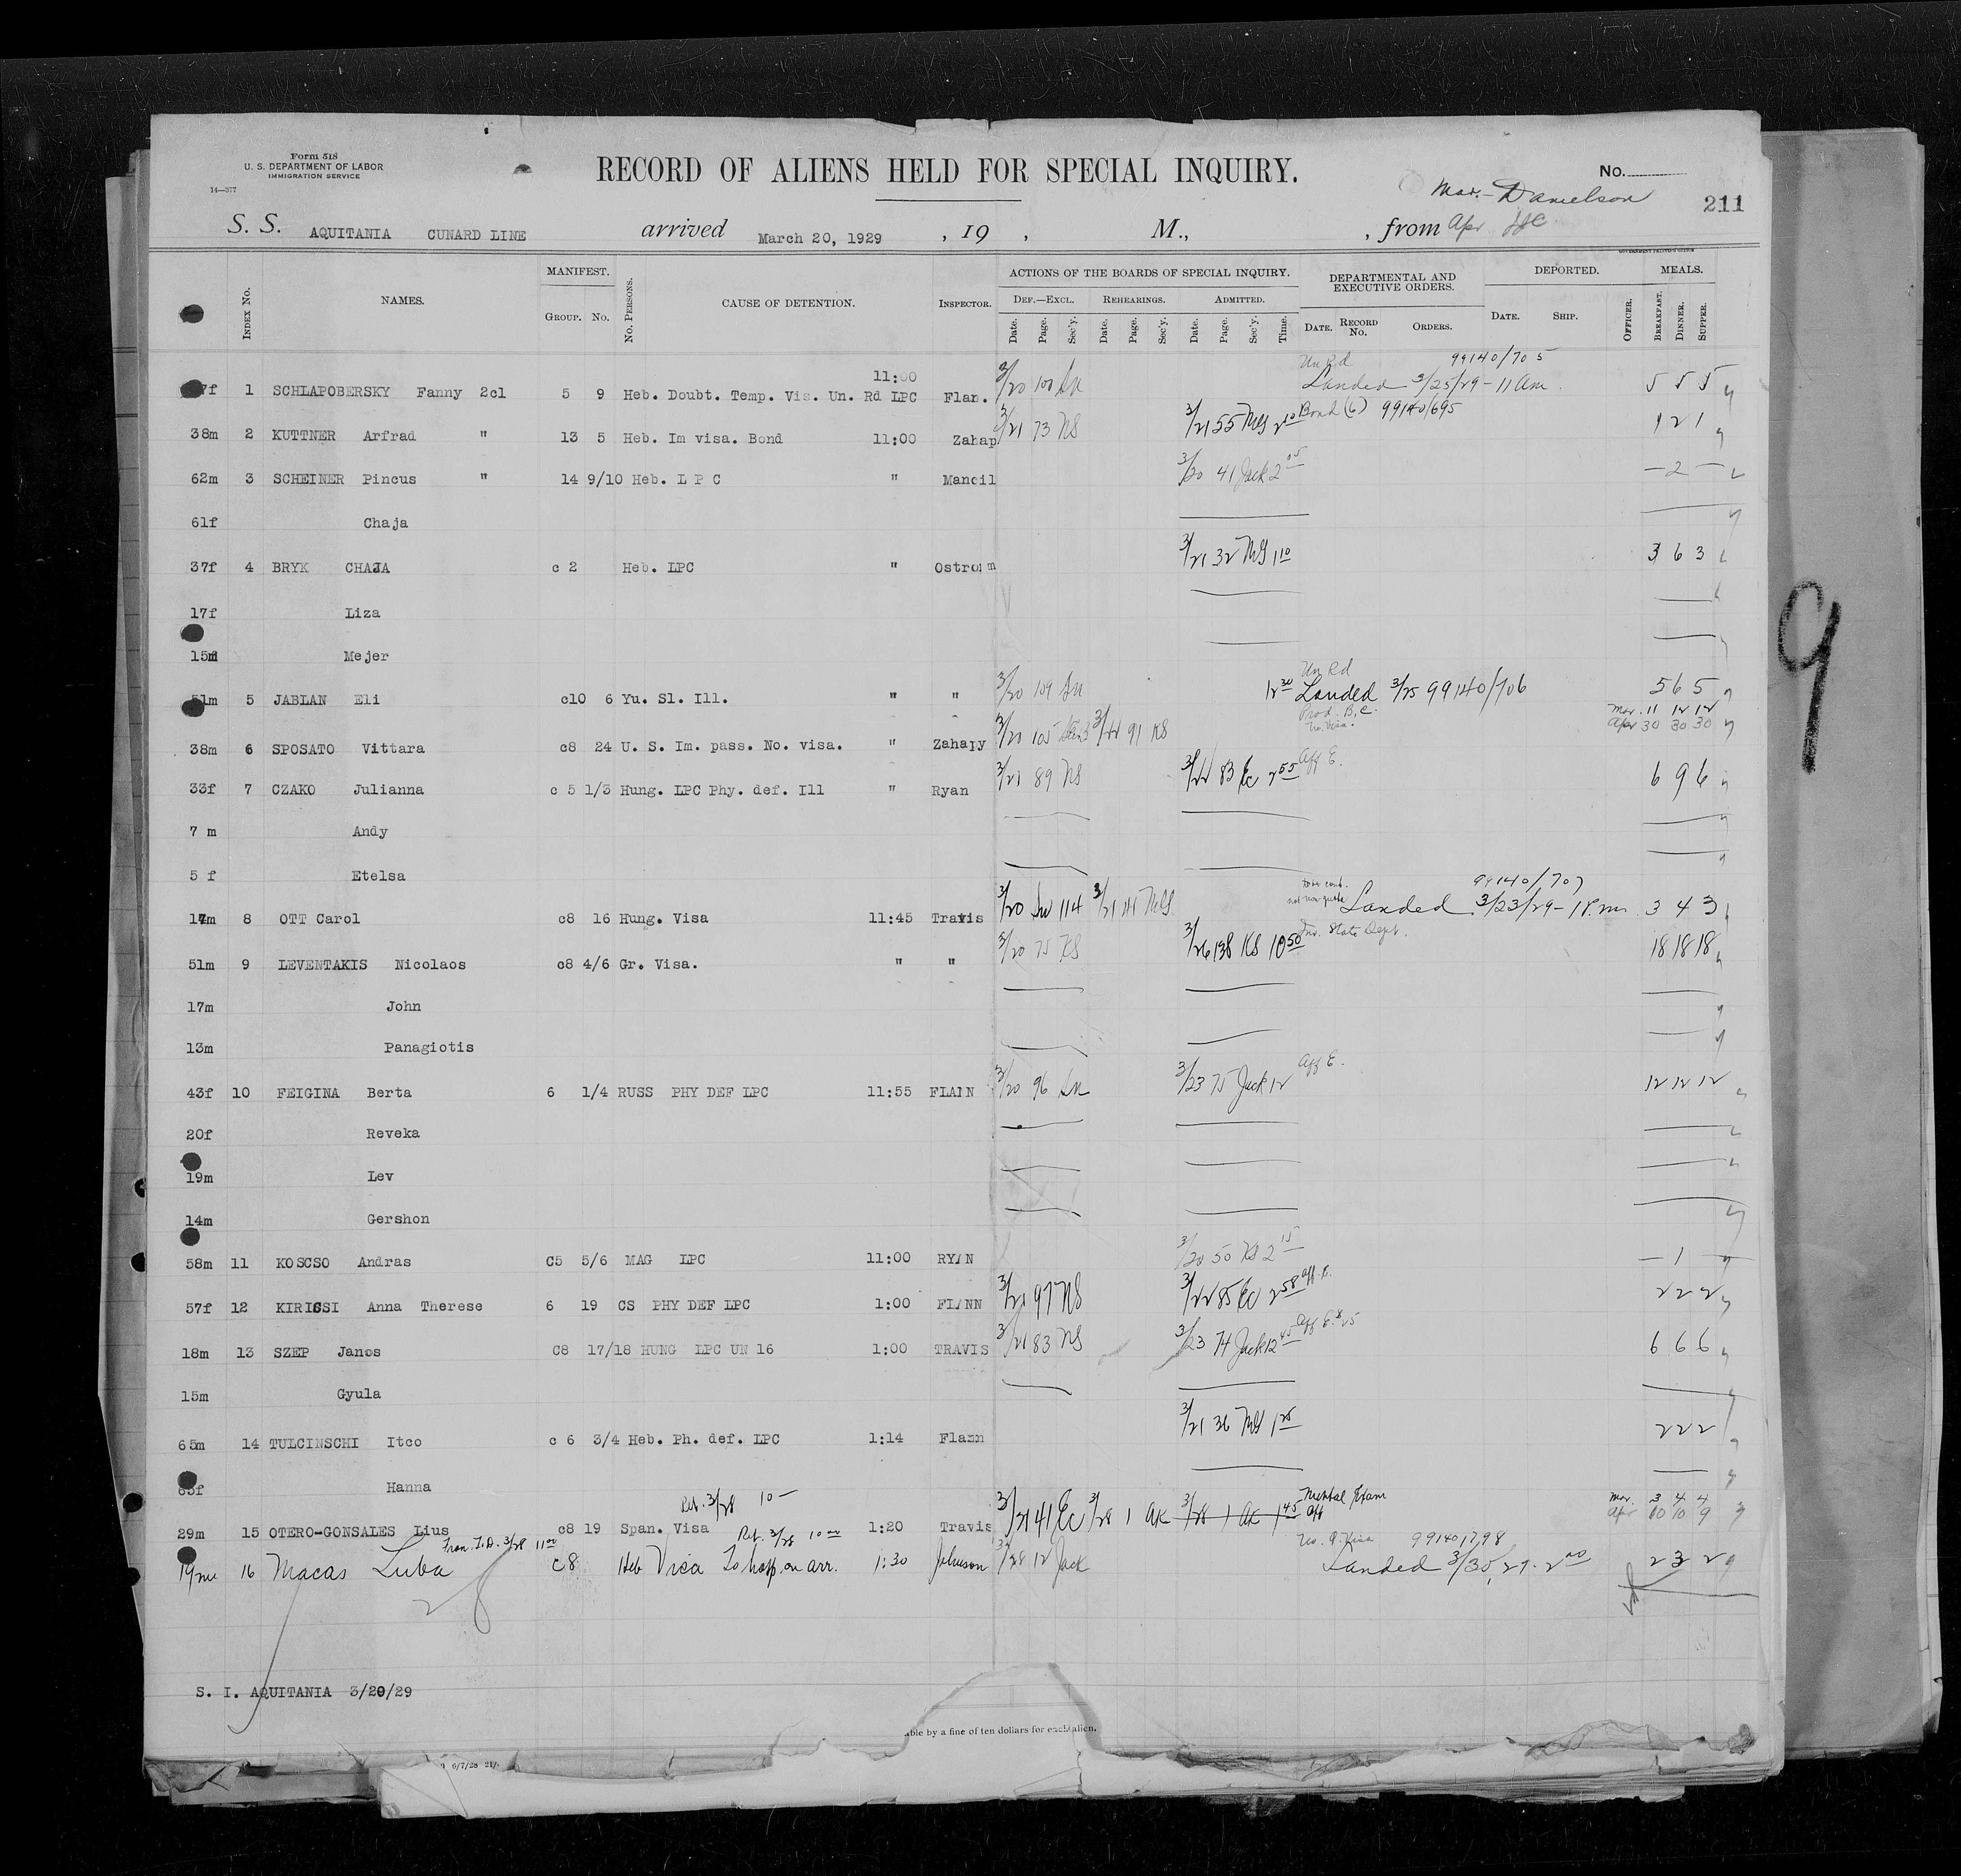 Form 518
U. S. DEPARTMENT OF LABOR
IMMIGRATION SERVICE
14—377
RECORD OF ALIENS HELD FOR SPECIAL INQUIRY.
No.
Mar. - Danielson
211
S. S. AQUITANIA CUNARD LINE arrived March 20, 1929 , 19 , M., , from Apr
GOVERNMENT PRINTING OFFICE
INDEX No. NAMES. MANIFEST. GROUP. No. No. PERSONS. CAUSE OF DETENTION. INSPECTOR. ACTIONS OF THE BOARDS OF SPECIAL INQUIRY. DEF.—EXCL. REHEARINGS. ADMITTED. DEPARTMENTAL AND EXECUTIVE ORDERS. DEPORTED. MEALS.
Date. Page. Sec'y. Date. Page. Sec'y. Date. Page. Sec'y. Time. DATE. RECORD No. ORDERS. DATE. SHIP. OFFICER. BREAKFAST. DINNER. SUPPER.
11:00 Un Rd 99140/705
7f 1 SCHLAPOBERSKY Fanny 2cl 5 9 Heb. Doubt. Temp. Vis. Un. Rd LPC Flan. 3/20 Landed 3/25/29 - 11 am. 5 5 5
38m 2 KUTTNER Arfrad " 13 5 Heb. Im visa. Bond 11:00 Zahap 3/21 73 NS 3/21 55 MS 2 10 Bond (6) 99140/695 1 2 1
62m 3 SCHEINER Pincus " 14 9/10 Heb. L P C " Mancil 3/20 41 Jack 2 05 — 2 —
61f Chaja
37f 4 BRYK CHAJA c 2 Heb. LPC " Ostrom 3/21 32 MS 1 10 3 6 3
17f Liza
15m Mejer
Un Rd
51m 5 JABLAN Eli c10 6 Yu. Sl. Ill. " " 3/20 109 12 30 Landed 3/25 99140/706 5 6 5
Prod. B.C. Mar. 11 12 12
No. Visa. Apr 30 30 30
38m 6 SPOSATO Vittara c8 24 U. S. Im. pass. No. visa. " Zahapy 3/20 105 3/22 91 KS
33f 7 CZAKO Julianna c 5 1/3 Hung. LPC Phy. def. Ill " Ryan 3/21 89 NS 3/22 83 Ec 2 55 Aff E. 6 9 6
7 m Andy
5 f Etelsa
99140/707
17m 8 OTT Carol c8 16 Hung. Visa 11:45 Travis 3/20 114 3/21 41 MS Landed 3/23/29 - 1 P.m 3 4 3
51m 9 LEVENTAKIS Nicolaos c8 4/6 Gr. Visa. " " 3/20 75 KS 3/26 138 KS 10 50 State Dept. 18 18 18
17m John
13m Panagiotis
43f 10 FEIGINA Berta 6 1/4 RUSS PHY DEF LPC 11:55 FLANN 3/20 96 3/23 75 Jack 12 Aff E. 12 12 12
20f Reveka
19m Lev
14m Gershon
58m 11 KOSCSO Andras C5 5/6 MAG LPC 11:00 RYAN 3/20 50 KS 2 15 — 1 —
57f 12 KIRICSI Anna Therese 6 19 CS PHY DEF LPC 1:00 FLANN 3/21 97 NS 3/22 85 Ec 2 58 aff. E. 2 2 2
18m 13 SZEP Janos C8 17/18 HUNG LPC UN 16 1:00 TRAVIS 3/21 83 NS 3/23 74 Jack 12 45 Aff E. 6 6 6
15m Gyula
65m 14 TULCINSCHI Itco c 6 3/4 Heb. Ph. def. LPC 1:14 Flann 3/21 36 MS 1 25 2 2 2
63f Hanna
Ret. 3/28 10 — Mental Exam Mar. 3 4 4
29m 15 OTERO-GONSALES Lius c8 19 Span. Visa 1:20 Travis 3/21 41 Ec 3/28 1 AK 3/28 1 AK 1 45 Aff Apr 10 10 9
Fran. I.D. 3/28 11 00 Ret. 3/28 10 00 No. Q. Visa 99140/798
19m 16 Macas Luba C8 Heb Visa To hosp. on arr. 1:30 Johnson 3/28 12 Jack Landed 3/30, 29. 2 00 2 3 2
S. I. AQUITANIA 3/20/29
able by a fine of ten dollars for each alien.
6/7/28 21/
9